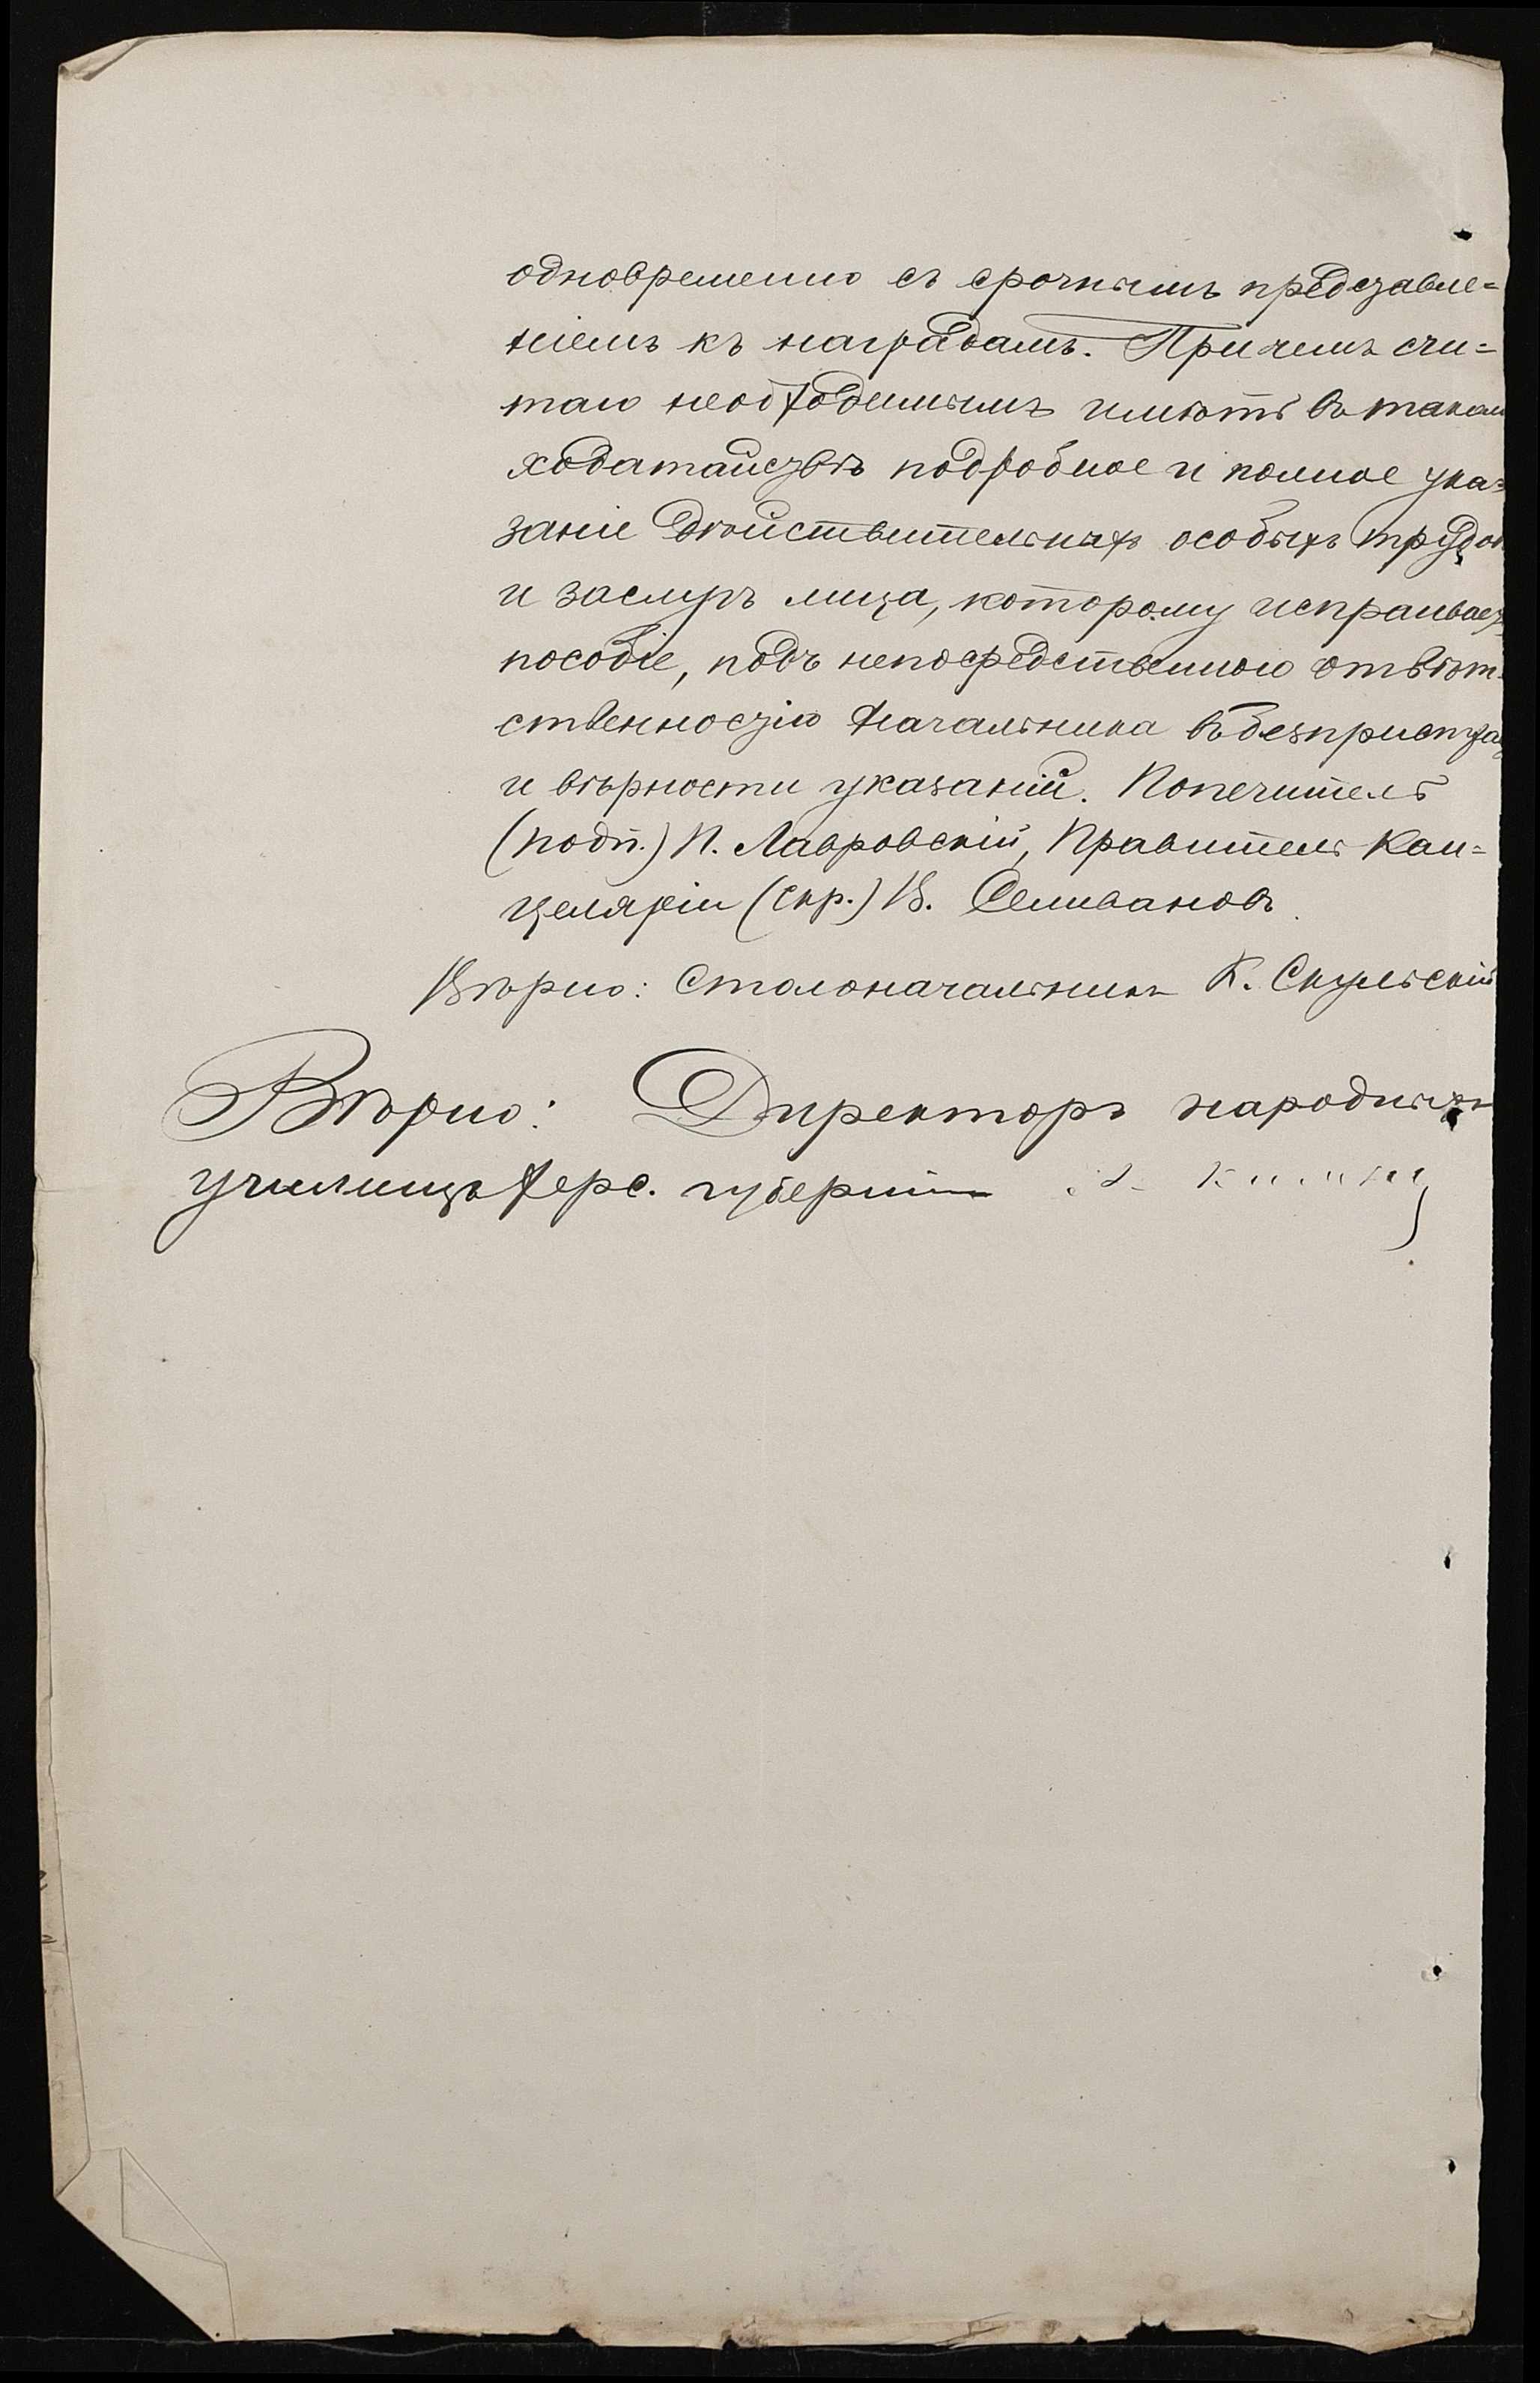 одновременно съ срочнымъ представле=
ніемъ къ наградамъ. Причемъ счи=
таю необходимымъ имѣть въ таком
ходатайствѣ подробное и полное ука=
заніе дѣйствительныхъ особыхъ трудов
и заслугъ лица, которому испрашивает
пособіе, подъ непосредственною отвѣт-
ственностію Начальника въ безпристра
и вѣрности указаній. Попечитель
(подп.) П. Лавровскій, Правитель Кан=
целяріи (скр.) В. Селивановъ
Вѣрно: Столоначальникъ К. Скульскій
Вѣрно: Директоръ народныхъ
училищъ Херс. губерніи